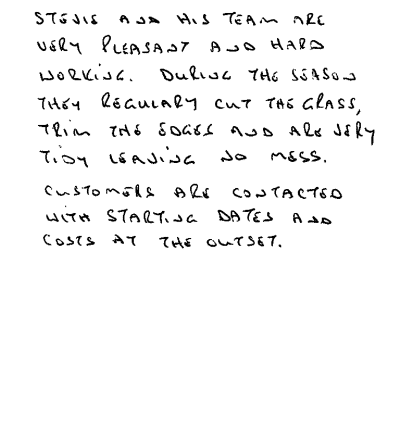 STEVIE AND HIS TEAM ARE
VERY PLEASANT AND HARD
WORKING. DURING THE SEASON
THEY REGULARY CUT THE GRASS,
TRIM THE EDGES AND ARE VERY
TIDY LEAVING NO MESS.
CUSTOMERS ARE CONTACTED
WITH STARTING DATES AND
COSTS AT THE OUTSET.